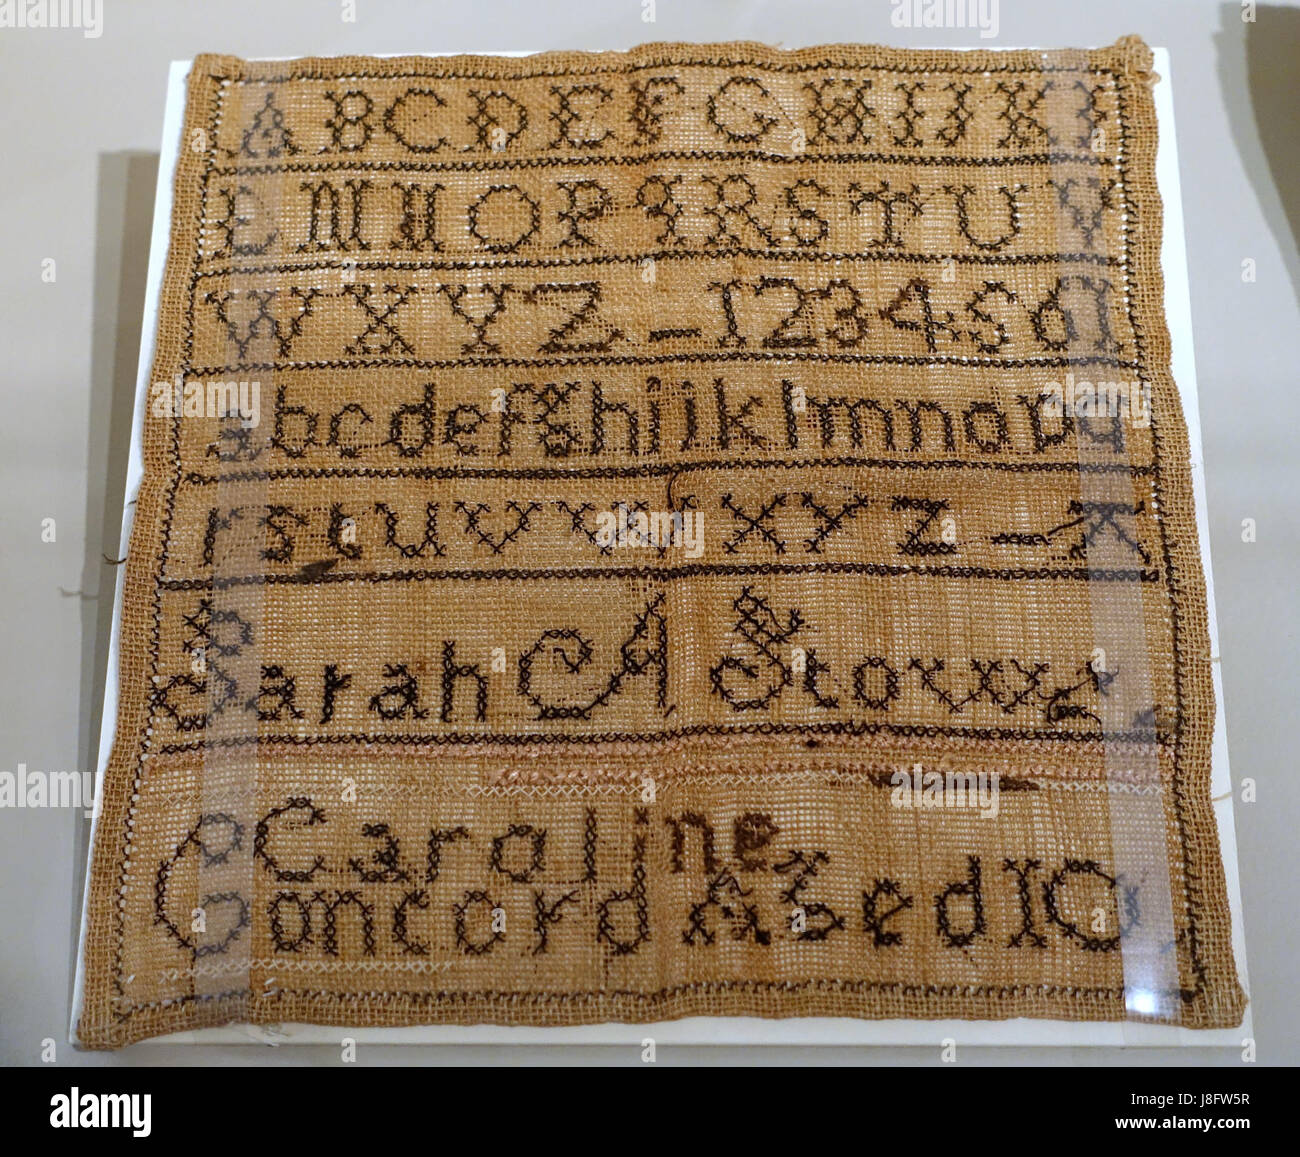 A B C D E F G H I J K
L M N O P Q R S T U V
W X Y Z _ 1 2 3 4 5 6 7
a b c d e f g h i j k l m n o p q
r s t u v w x y z _
Sarah A Stowe
Caroline
Concord Aged 10
alamy
Image ID: J8FW5R
www.alamy.com